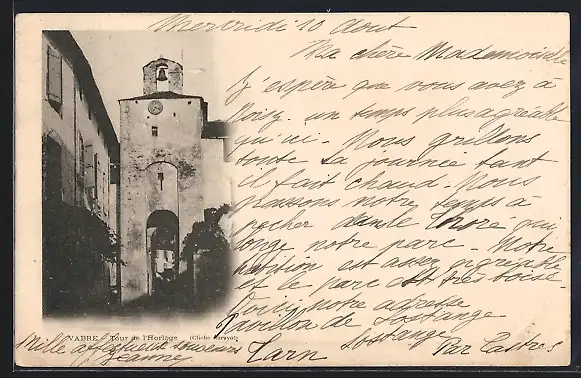 Mercredi 10 Aout
Ma chère Mademoiselle
J'espère que vous avez à
Voisy un temps plus agréable
qu'ici. Nous grillons
toute la journée tant
il fait chaud. Nous
passons notre temps à
pêcher dans le Thoré qui
longe notre parc. Notre
habition est assez agréable
et le parc est très boisé.
Voici notre adresse
Pavillon de Sostange
Sostange
Par Castres
Tarn
VABRE - Tour de l'Horloge (Cliché Narayol)
Mille affectueux souvenirs
Jeanne